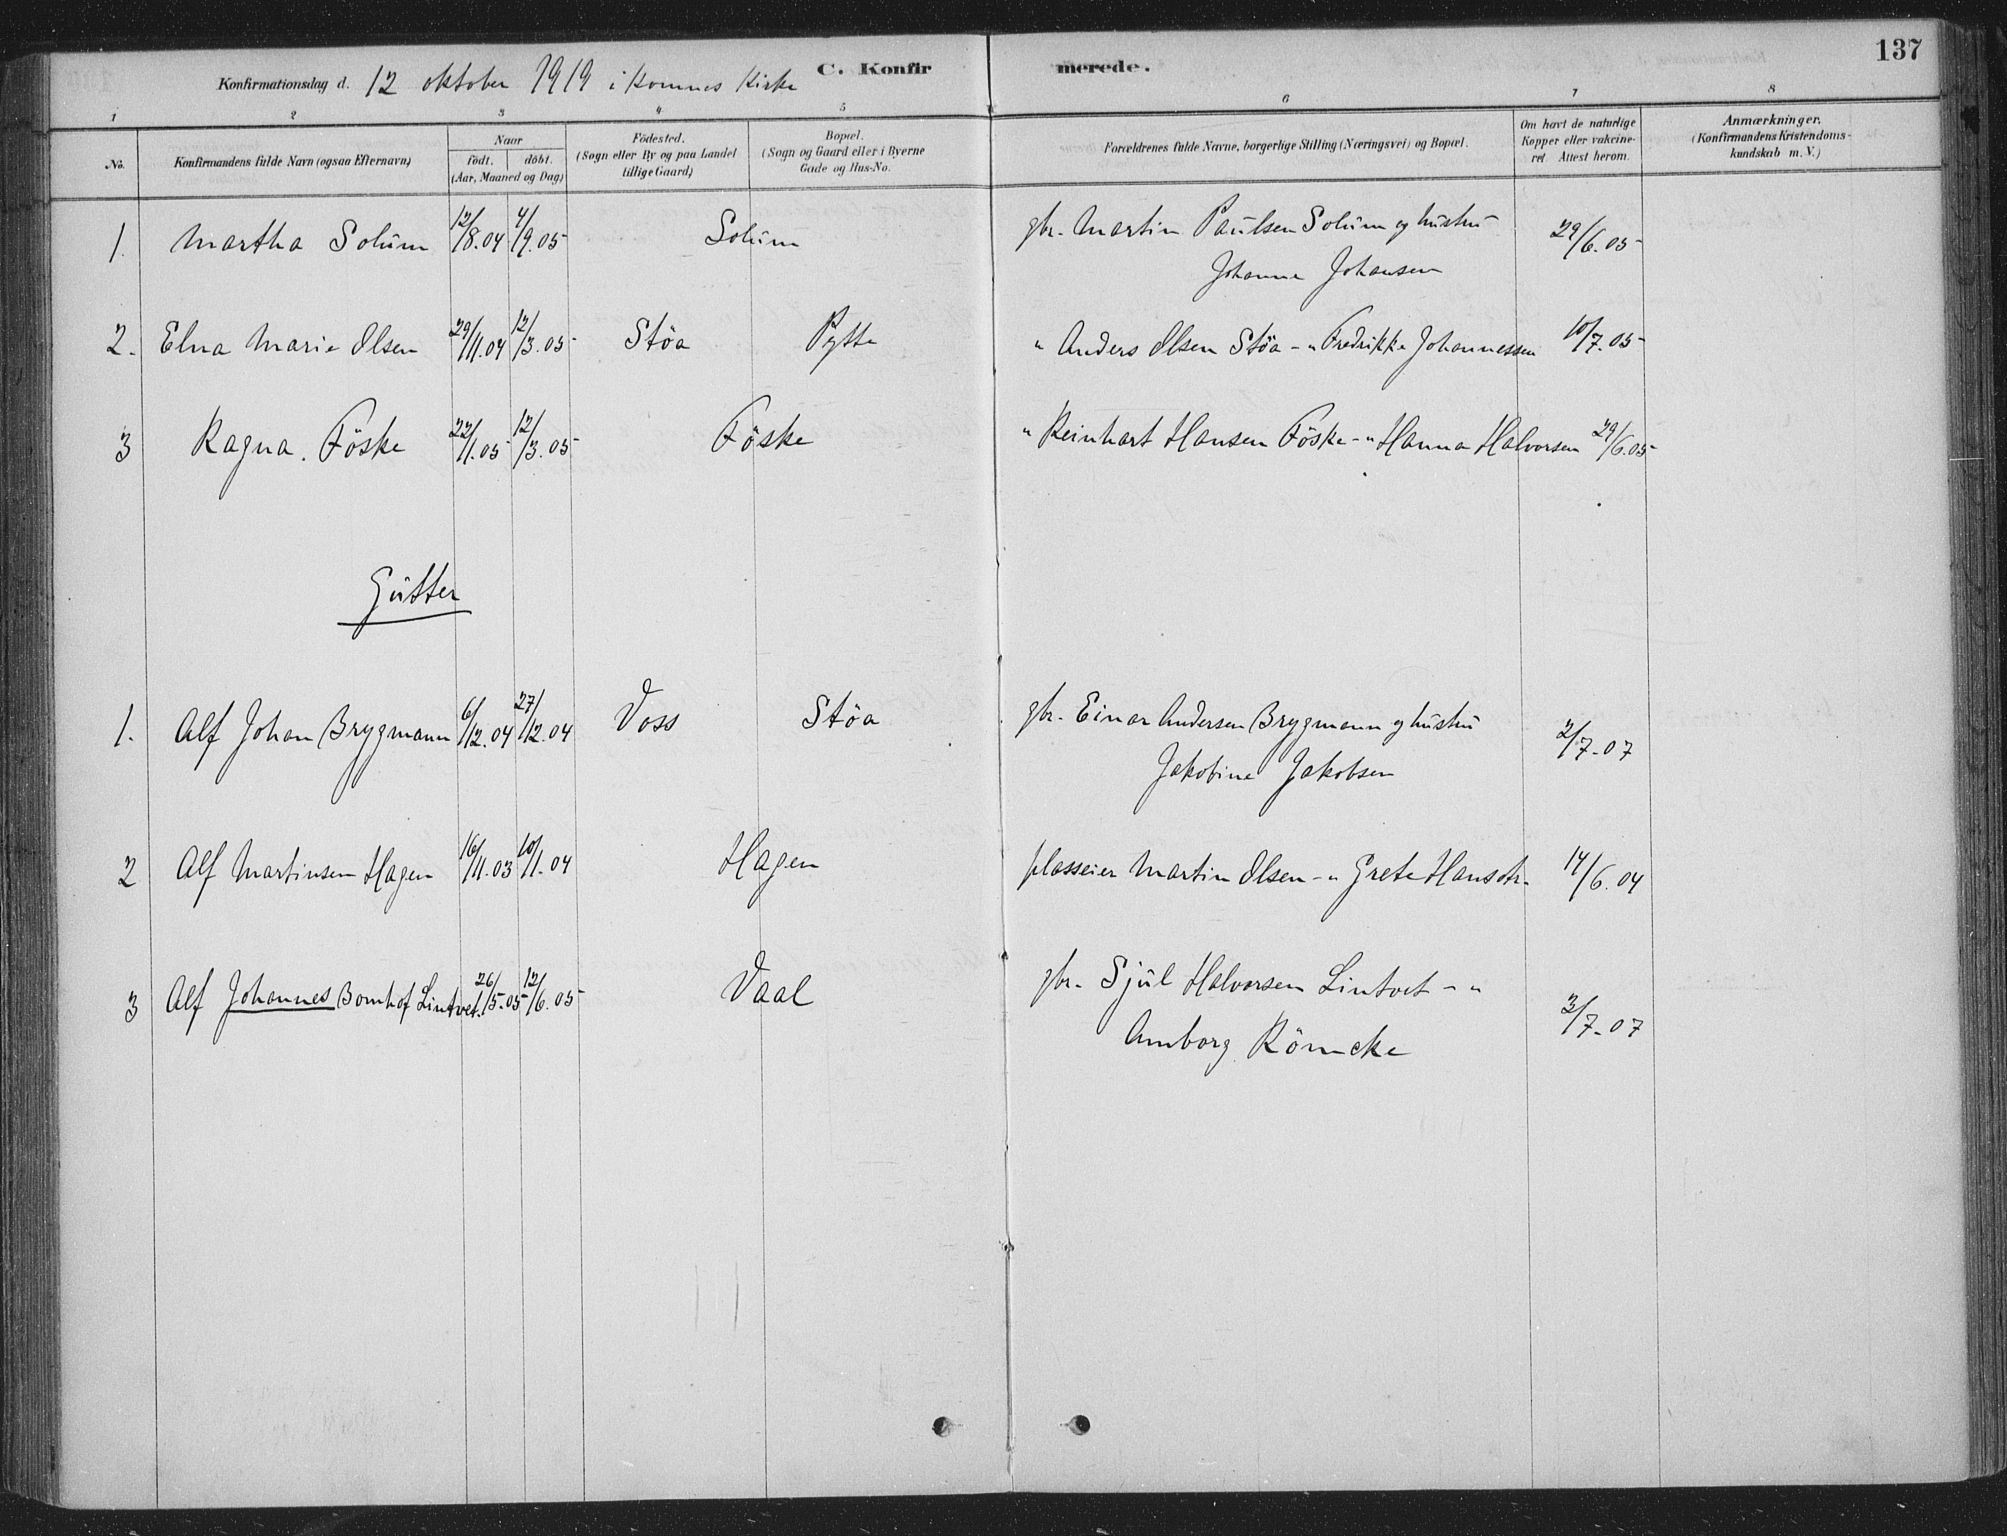 137
Konfirmationsdag d. 12 oktober 1919 i Komnes Kirke C. Konfirmerede.
1 2 3 4 5 6 7 8
No.
Konfirmandens fulde Navn (ogsaa Efternavn)
Naar
födt. döbt.
(Aar, Maaned og Dag)
Födested.
(Sogn eller By og paa Landet
tillige Gaard)
Bopæl.
(Sogn og Gaard eller i Byerne
Gade og Hus-No.
Forældrenes fulde Navne, borgerlige Stilling (Næringsvei) og Bopæl.
Om havt de naturlige
Kopper eller vakcine-
ret. Attest herom.
Anmærkninger.
(Konfirmandens Kristendoms-
kundskab m. V.)
1. Martha Solum 12/8.04 4/9.05 Solum gbr. Martin Paulsen Solum og hustru 29/6.05
Johanne Johansen
2. Elna Marie Olsen 29/11.04 12/3.05 Stöa Pytte " Anders Olsen Stöa - " Fredrikke Johannessen 10/7.05
3 Ragna Föske 22/1.05 12/3.05 Föske " Reinhart Hansen Föske - " Hanna Halvorsen 29/6.05
Gutter
1. Alf Johan Brygmann 6/12.04 27/12.04 Voss Stöa gbr. Einar Andersen Brygmann og hustru 2/7-07
Jakobine Jakobsen
2 Alf Martinsen Hagen 16/11.03 10/1.04 Hagen plasseier Martin Olsen - " Grete Hansdtr. 14/6.04
3 Alf Johannes Bomhof Lintvet 26/5.05 12/6.05 Vaal gbr. Sjul Halvorsen Lintvet - " 3/7-07
Amborg Römcke